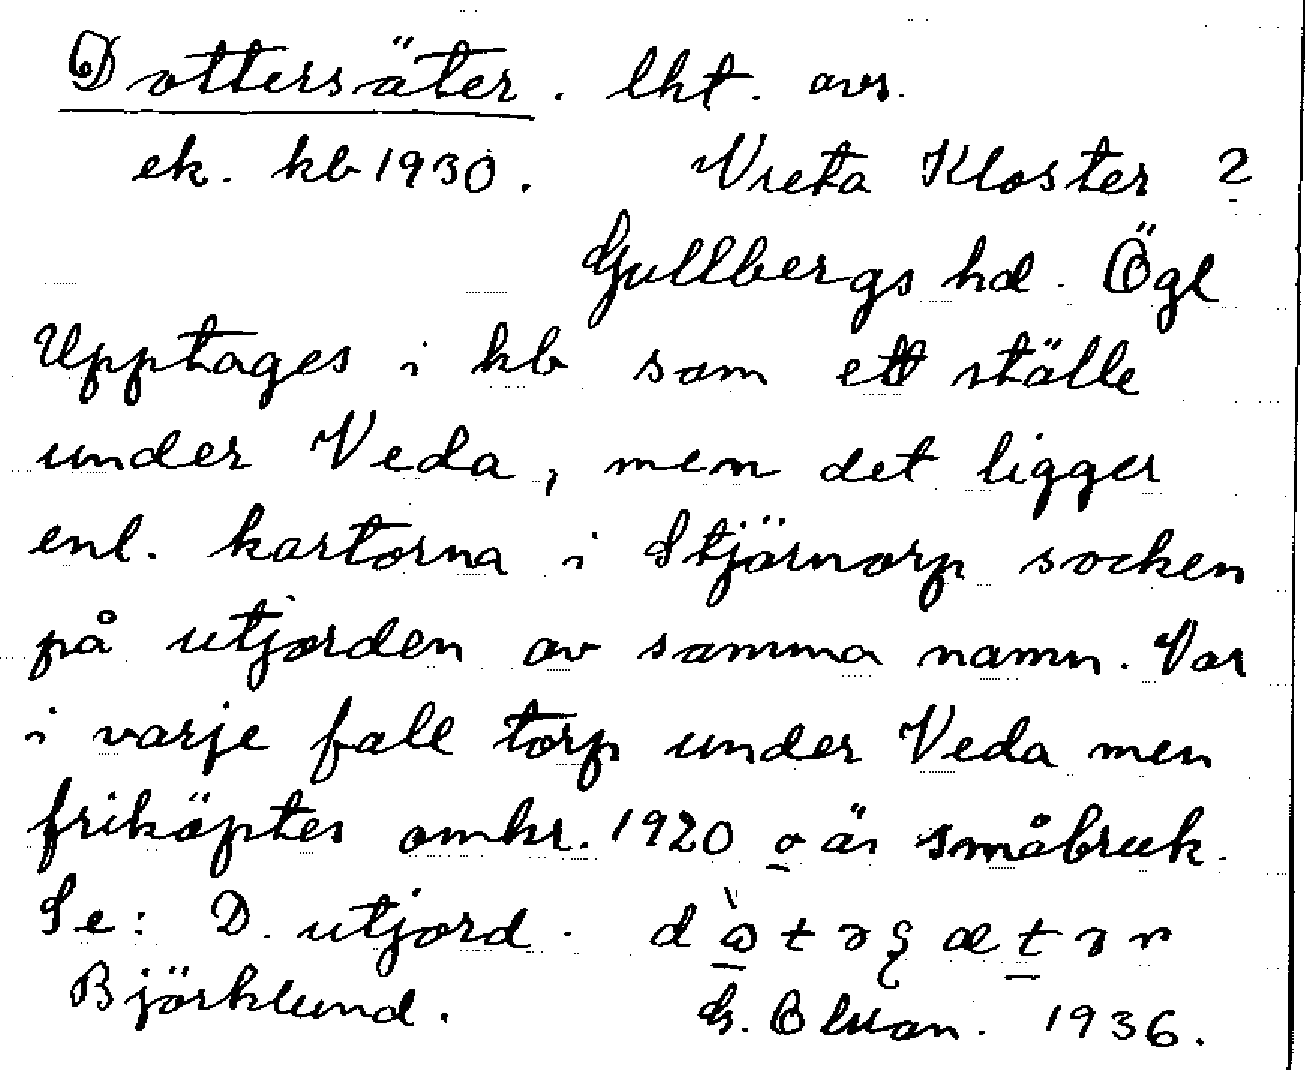 Dottersäter. lht. avs.
ek. kb 1930. Vreta Kloster ?
Gullbergs hd. Ögl
Upptages i kb som ett ställe
under Veda, men det ligger
enl. kartorna i Stjärnorp socken
på utjorden av samma namn. Var
i varje fall torp under Veda men
friköptes omkr. 1920 o är småbruk.
Se: D. utjord.
Björklund. 1936.